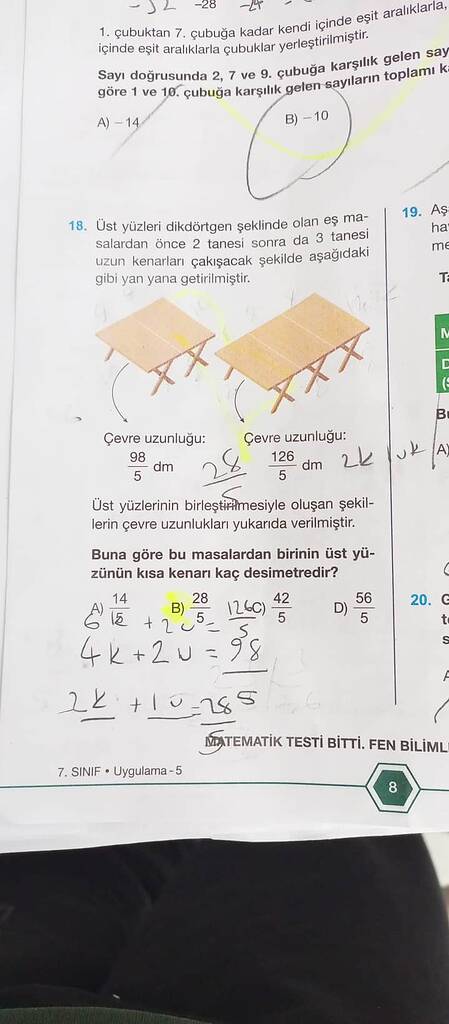 -28
1. çubuktan 7. çubuğa kadar kendi içinde eşit aralıklarla,
içinde eşit aralıklarla çubuklar yerleştirilmiştir.
Sayı doğrusunda 2, 7 ve 9. çubuğa karşılık gelen say
göre 1 ve 10. çubuğa karşılık gelen sayıların toplamı k
A) -14
B) -10
18. Üst yüzleri dikdörtgen şeklinde olan eş ma-
salardan önce 2 tanesi sonra da 3 tanesi
uzun kenarları çakışacak şekilde aşağıdaki
gibi yan yana getirilmiştir.
Çevre uzunluğu: Çevre uzunluğu:
98/5 dm 28/5 126/5 dm 2k
Üst yüzlerinin birleştirilmesiyle oluşan şekil-
lerin çevre uzunlukları yukarıda verilmiştir.
Buna göre bu masalardan birinin üst yü-
zünün kısa kenarı kaç desimetredir?
A) 14/5 B) 28/5 C) 42/5 D) 56/5
6 + 2u = 126/5
4k + 2u = 98
2k + 1u = 28/5
MATEMATİK TESTİ BİTTİ. FEN BİLİML
7. SINIF • Uygulama - 5
8
19. Aş
ha
me
T
M
D
(S
B
A)
20. G
t
s